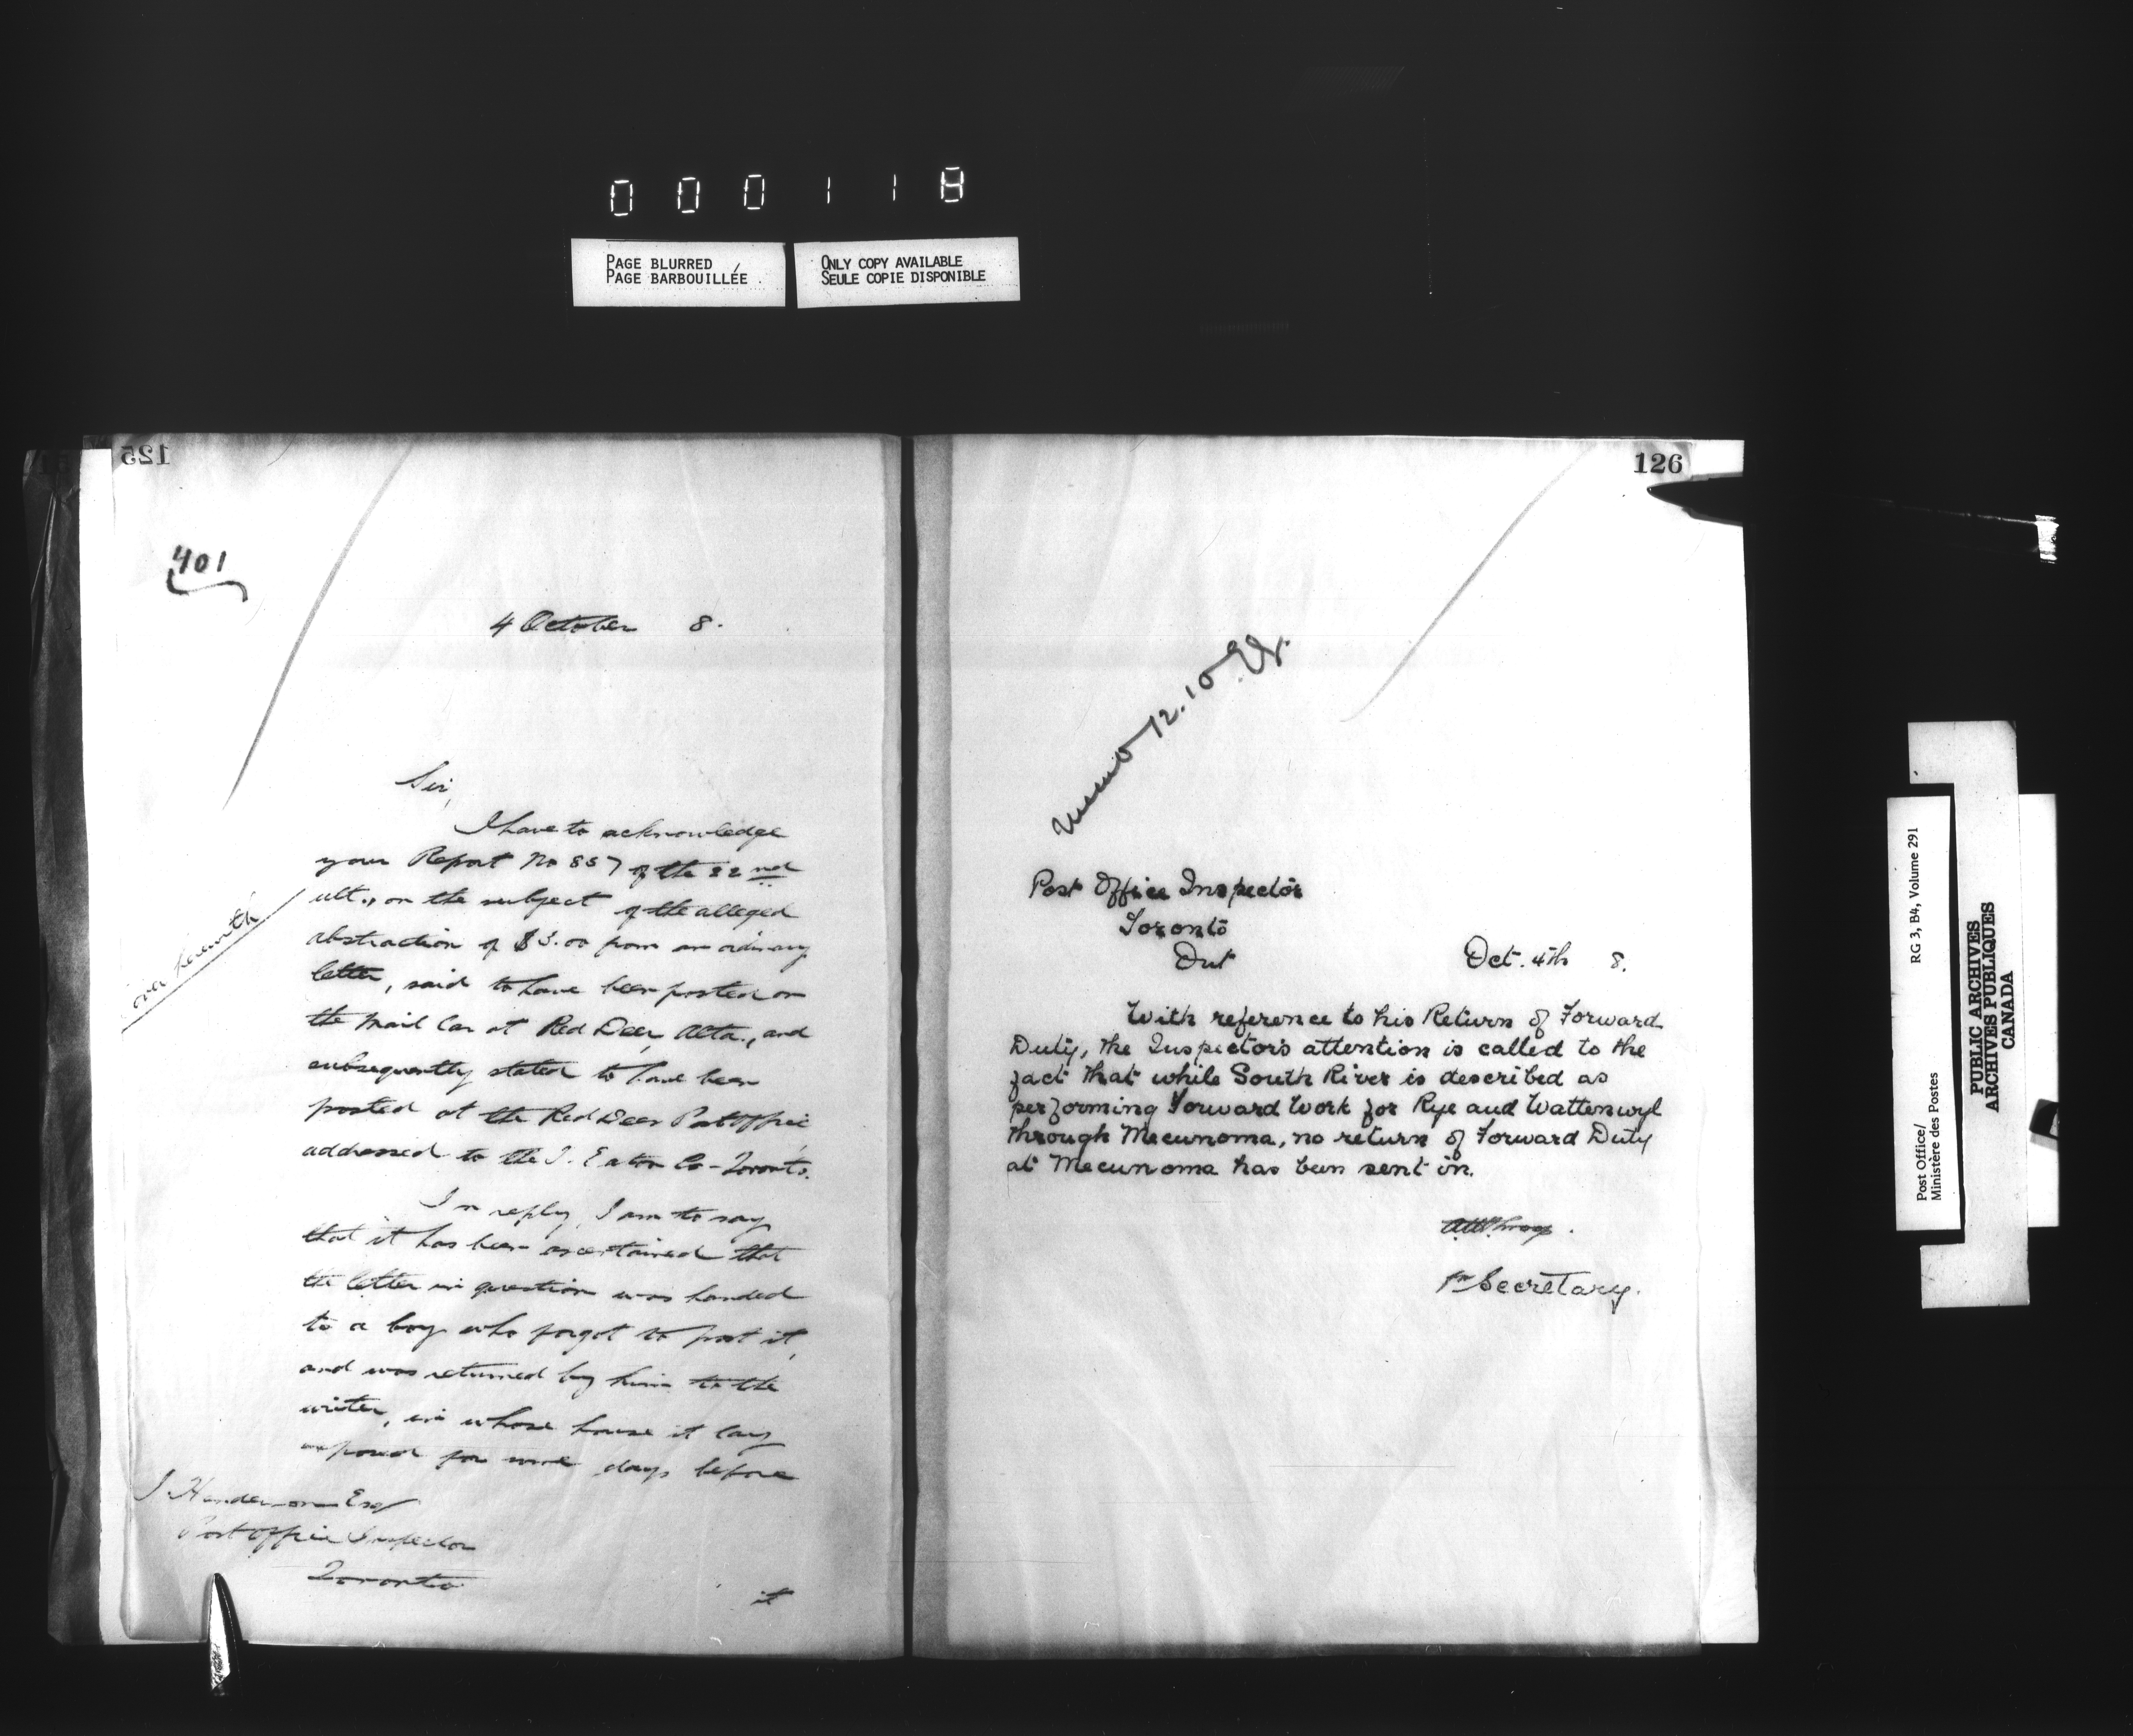 000118
PAGE BLURRED
PAGE BARBOUILLÉE
ONLY COPY AVAILABLE
SEULE COPIE DISPONIBLE
125
401
4 October 8.
Sir,
I have to acknowledge
your Report No 857 of the 22nd
ult., on the subject of the alleged
abstraction of $3.00 from an ordinary
letter, said to have been posted on
the Mail Car at Red Deer, Alta., and
subsequently stated to have been
posted at the Red Deer Post Office,
addressed to the T. Eaton Co-Toronto.
In reply, I am to say
that it has been ascertained that
the letter in question was handed
to a boy who forgot to post it,
and was returned by him to the
writer, in whose house it lay
exposed for some days before
J. Henderson Esq
Post Office Inspector
Toronto
it
herewith
126
memo 12.10
Post Office Inspector
Toronto
Ont
Oct. 4th 8.
With reference to his Return of Forward
Duty, the Inspector's attention is called to the
fact that while South River is described as
performing Forward Work for Rye and Wattenwyl
through Mecunoma, no return of Forward Duty
at Mecunoma has been sent in.
for Secretary.
Post Office/
Ministère des Postes
RG 3, B4, Volume 291
PUBLIC ARCHIVES
ARCHIVES PUBLIQUES
CANADA